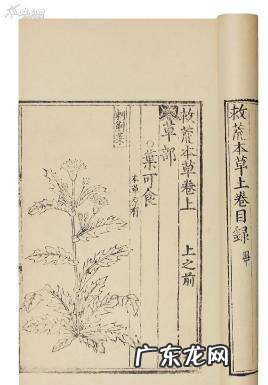 救荒本草上卷目錄畢
救荒本草卷上
上之前
草部
葉可食
本草原有
刺薊菜
广东龙网